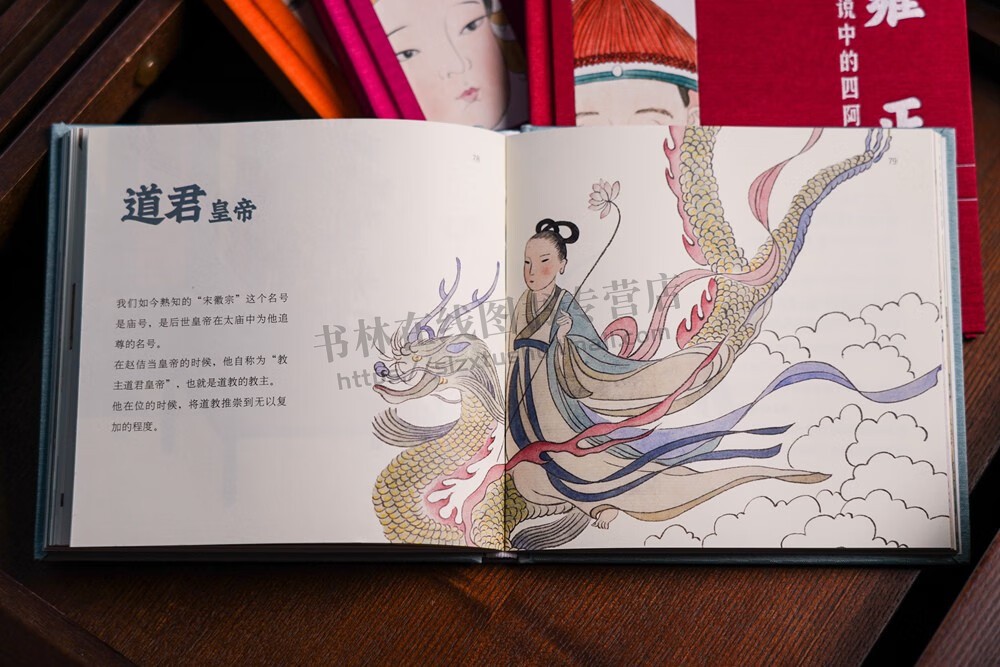 雍
正
说中的四阿
78
79
道君皇帝
我们如今熟知的“宋徽宗”这个名号
是庙号，是后世皇帝在太庙中为他追
尊的名号。
在赵佶当皇帝的时候，他自称为“教
主道君皇帝”，也就是道教的教主。
他在位的时候，将道教推崇到无以复
加的程度。
书林在线图书专营店